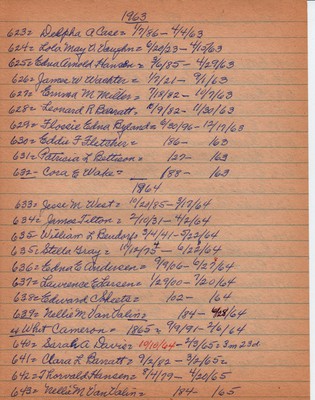 1963
623 = Delpha A Case = 1/7/86 - 4/4/63
624 = Lola May O. Vaughn = 6/20/23 - 4/15/63
625 = Edna Arnold Hansen = 8/6/85 - 4/29/63
626 = James W Waehter = 1/7/21 - 9/1/63
627 = Emma M. Miller = 7/18/82 - 11/7/63
628 = Leonard R Barratt = 10/9/82 - 11/30/63
629 = Flossie Edna Byland = 6/20/96 - 12/17/63
630 = Eddie F Fletcher = 186 - 163
631 = Patricia L Bettison = 127 - 163
632 - Cora E Wake = 188 - 163
1964
633 = Jesse M. West = 10/20/85 - 3/17/64
634 = James Tilton = 2/10/31 - 4/2/64
635 - William L 3/4/41 - 5/22/64
635 = Stella Gray = 10/12/75 - 6/22/64
636 = Edna E Andersen = 9/9/06 - 6/27/64
637 = Lawrence E Larsen = 1/29/00 - 7/20/64
638 = Edward Skeetz = 102 - 164
639 = Nellie M Van Valin = 184 - 4/28/64
Whit Cameron = 1865 = 9/9/91 - 2/6/64
640 = Sarah A Davis = 10/10/64 - 2/3/65 = 3m 23d
641 = Clara L Barratt = 9/2/82 - 3/2/65
642 = Thorvald Hansen = 8/4/79 - 4/20/65
643 = Nellie M. Van Valin = 184 - 165